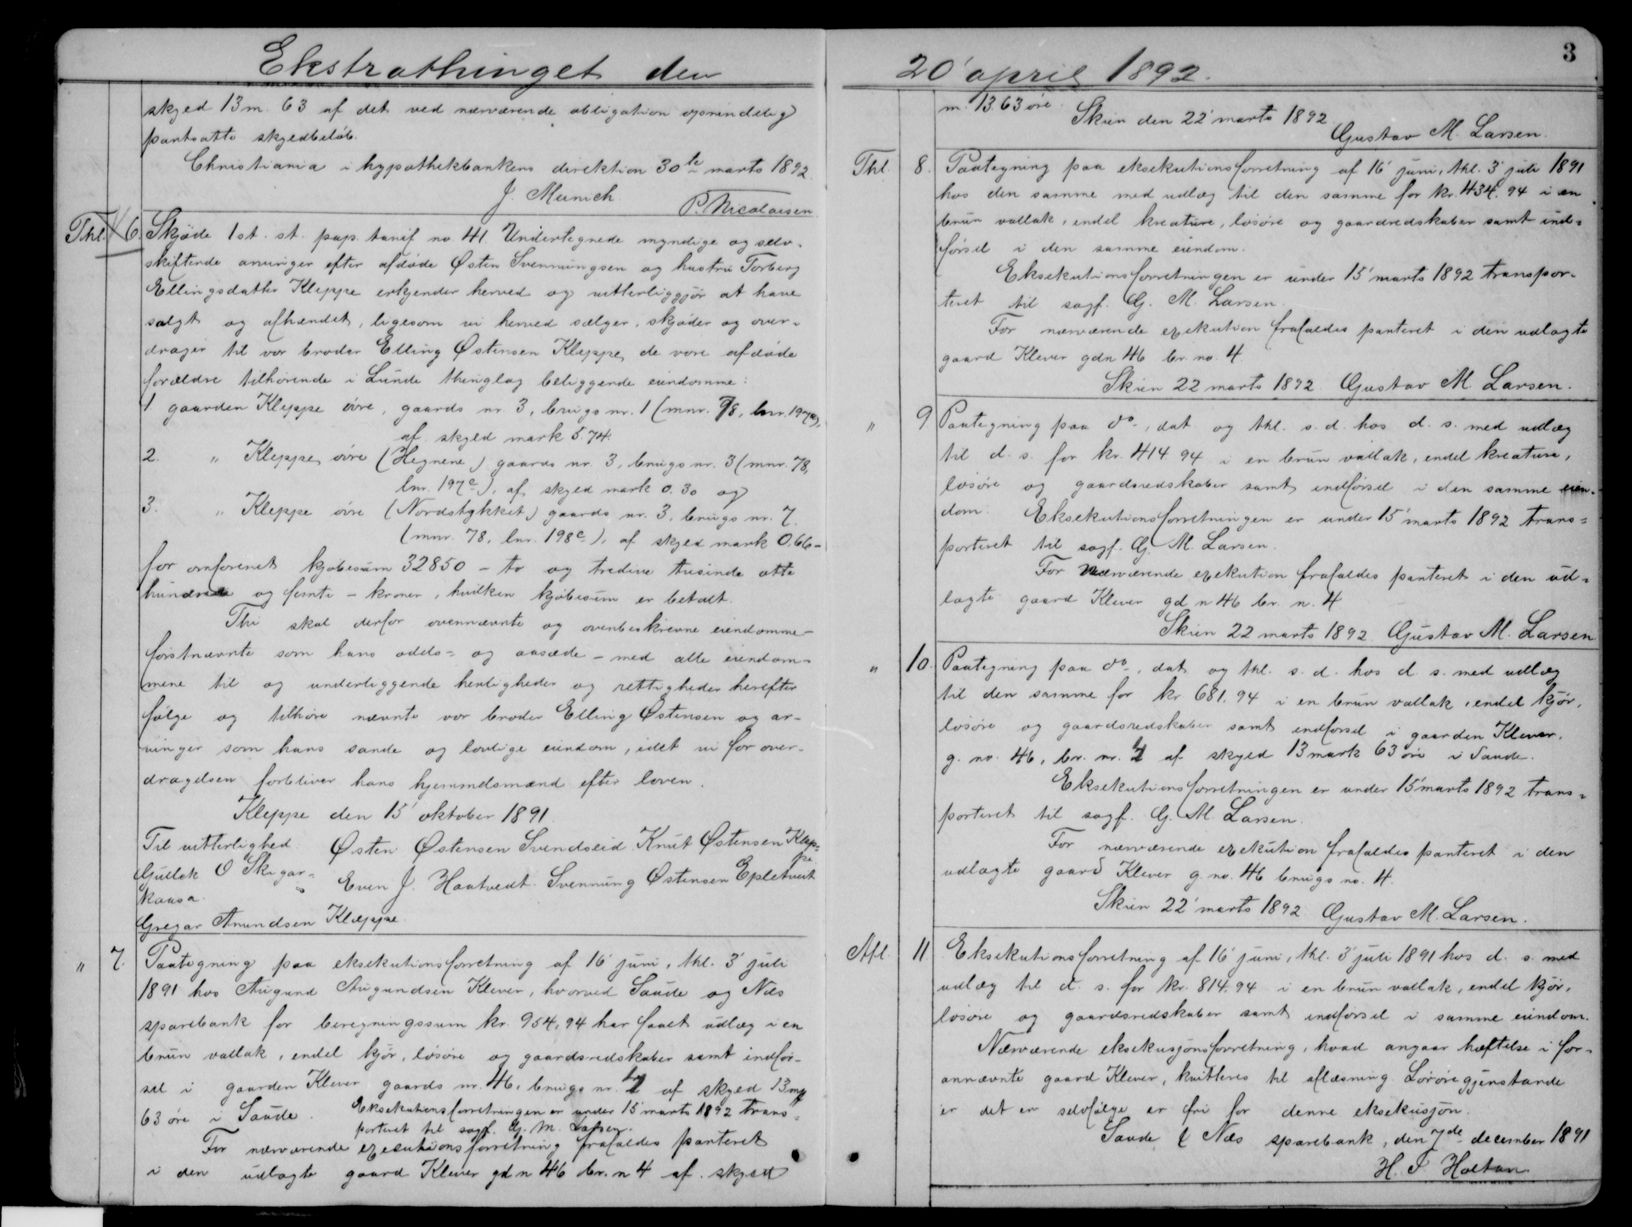 Ekstrathinget den
skyld 13 m. 63 af det ved nærværende obligation oprindelig
pantsatte skyldbeløb.
Christiania i hypothekbankens direktion 30te marts 1892.
J. Munch P. Nicolaisen
Thl. 6. Skjøde 1ot. st. pap. tarif no. 41 Undertegnede myndige og selv-
skiftende arvinger efter afdøde Østen Svenningsen og hustru Torberg
Ellingsdatter Kleppe erkjender herved og vitterliggjør at have
solgt og afhændet, ligesom vi herved sælger, skjøder og over-
drager til vor broder Elling Østensen Kleppe, de vore afdøde
forældre tilhørende i Lunde thinglag beliggende eiendomme:
1 gaarden Kleppe øvre, gaards nr. 3, brugs nr. 1 (mnr. 78, lnr. 197a),
af skyld mark 5.74.
2. " Kleppe, øvre (Hegnene) gaards nr. 3, brugs nr. 3 (mnr. 78,
lnr. 197c), af skyld mark 0.30 og
3. " Kleppe øvre (Nordstykket) gaards nr. 3, brugs nr. 7.
(mnr. 78, lnr. 198c), af skyld mark 0.66 -
for omforenet kjøbesum 32850 - to og tredive tusinde otte
hundrede og femti - kroner, hvilken kjøbesum er betalt.
Thi skal derfor ovennævnte og ovenbeskrevne eiendomme -
førstnævnte som hans odels- og aasæde - med alle eiendom-
mene til og underliggende herligheder og rettigheder herefter
følge og tilhøre nævnte vor broder Elling Østensen og ar-
vinger som hans sande og lovlige eiendom, idet vi for over-
dragelsen forbliver hans hjemmelsmænd efter loven.
Kleppe den 15' oktober 1891.
Til vitterlighed Østen Østensen Svendseid Knut Østensen Klep-
pe.
Gullek O Skogar-
kaasa. Even J. Haatvedt. Svennung Østensen Epletveit
Gregar Amundsen Kleppe.
" 7. Paategning paa eksekutionsforretning af 16' juni, thl. 3' juli
1891 hos Augund Augundsen Klever, hvorved Saude og Næs
sparebank for beregningssum kr. 954,94 har faaet udlæg i en
brun vallak, endel kjør, løsøre og gaardsredskaber samt indfør-
sel i gaarden Klever gaards nr. 46, brugs nr. 4 af skyld 13 mk
63 øre i Saude. Eksekutionsforretningen er under 15' marts 1892 trans-
porteret til sagf. G. M. Larsen.
For nærværende exekutionsforretning frafaldes panteret
i den udlagte gaard Klever gd n 46 br. n 4 af skyld
20' april 1892.
3
m. 13.63 øre.
Skien den 22' marts 1892
Gustav M. Larsen.
Thl. 8. Paategning paa eksekutionsforretning af 16' juni, thl. 3' juli 1891
hos den samme med udlæg til den samme for kr. 434.94 i en
brun vallak, endel kreature, løsøre og gaardredskaber samt ind-
førsel i den samme eiendom.
Eksekutionsforretningen er under 15' marts 1892 transpor-
teret til sagf. G. M. Larsen.
For nærværende exekution frafaldes panteret i den udlagte
gaard Klever gdn 46 br. no. 4
Skien 22 marts 1892. Gustav M. Larsen.
" 9 Paategning paa do, dat og thl. s. d. hos d. s. med udlæg
til d. s. for kr. 414 94 i en brun vallak, endel kreature,
løsøre og gaardsredskaber samt indførsel i den samme eien-
dom. Eksekutionsforretningen er under 15' marts 1892 trans-
porteret til sagf. G. M. Larsen.
For nærværende exekution frafaldes panteret i den ud-
lagte gaard Klever gd n 46 br. n. 4
Skien 22 marts 1892 Gustav M. Larsen
" 10. Paategning paa do, dat og thl. s. d. hos d s. med udlæg
til den samme for kr 681.94 i en brun vallak, endel kjør,
løsøre og gaardsredskaber samt indførsel i gaarden Klever,
g. no. 46, br. nr. 4 af skyld 13 mark 63 øre i Saude.
Eksekutionsforretningen er under 15' marts 1892 trans-
porteret til sagf. G. M. Larsen.
For nærværende exekution frafaldes panteret i den
udlagte gaard Klever g. no. 46 brugs no. 4.
Skien 22' marts 1892 Gustav M. Larsen.
Afl. 11 Eksekutionsforretning af 16' juni, thl. 3' juli 1891 hos d. s. med
udlæg til d. s. for kr. 814,94 i en brun vallak, endel kjør,
løsøre og gaardsredskaber samt indførsel i samme eiendom.
Nærværende eksekusjonsforretning, hvad angaar hæftelse i for-
annævnte gaard Klever, kvitteres til aflæsning. Løsøregjenstande
er det en selvfølge er fri for denne eksekusjon.
Saude & Næs sparebank, den 7de december 1891
H. J. Holtan